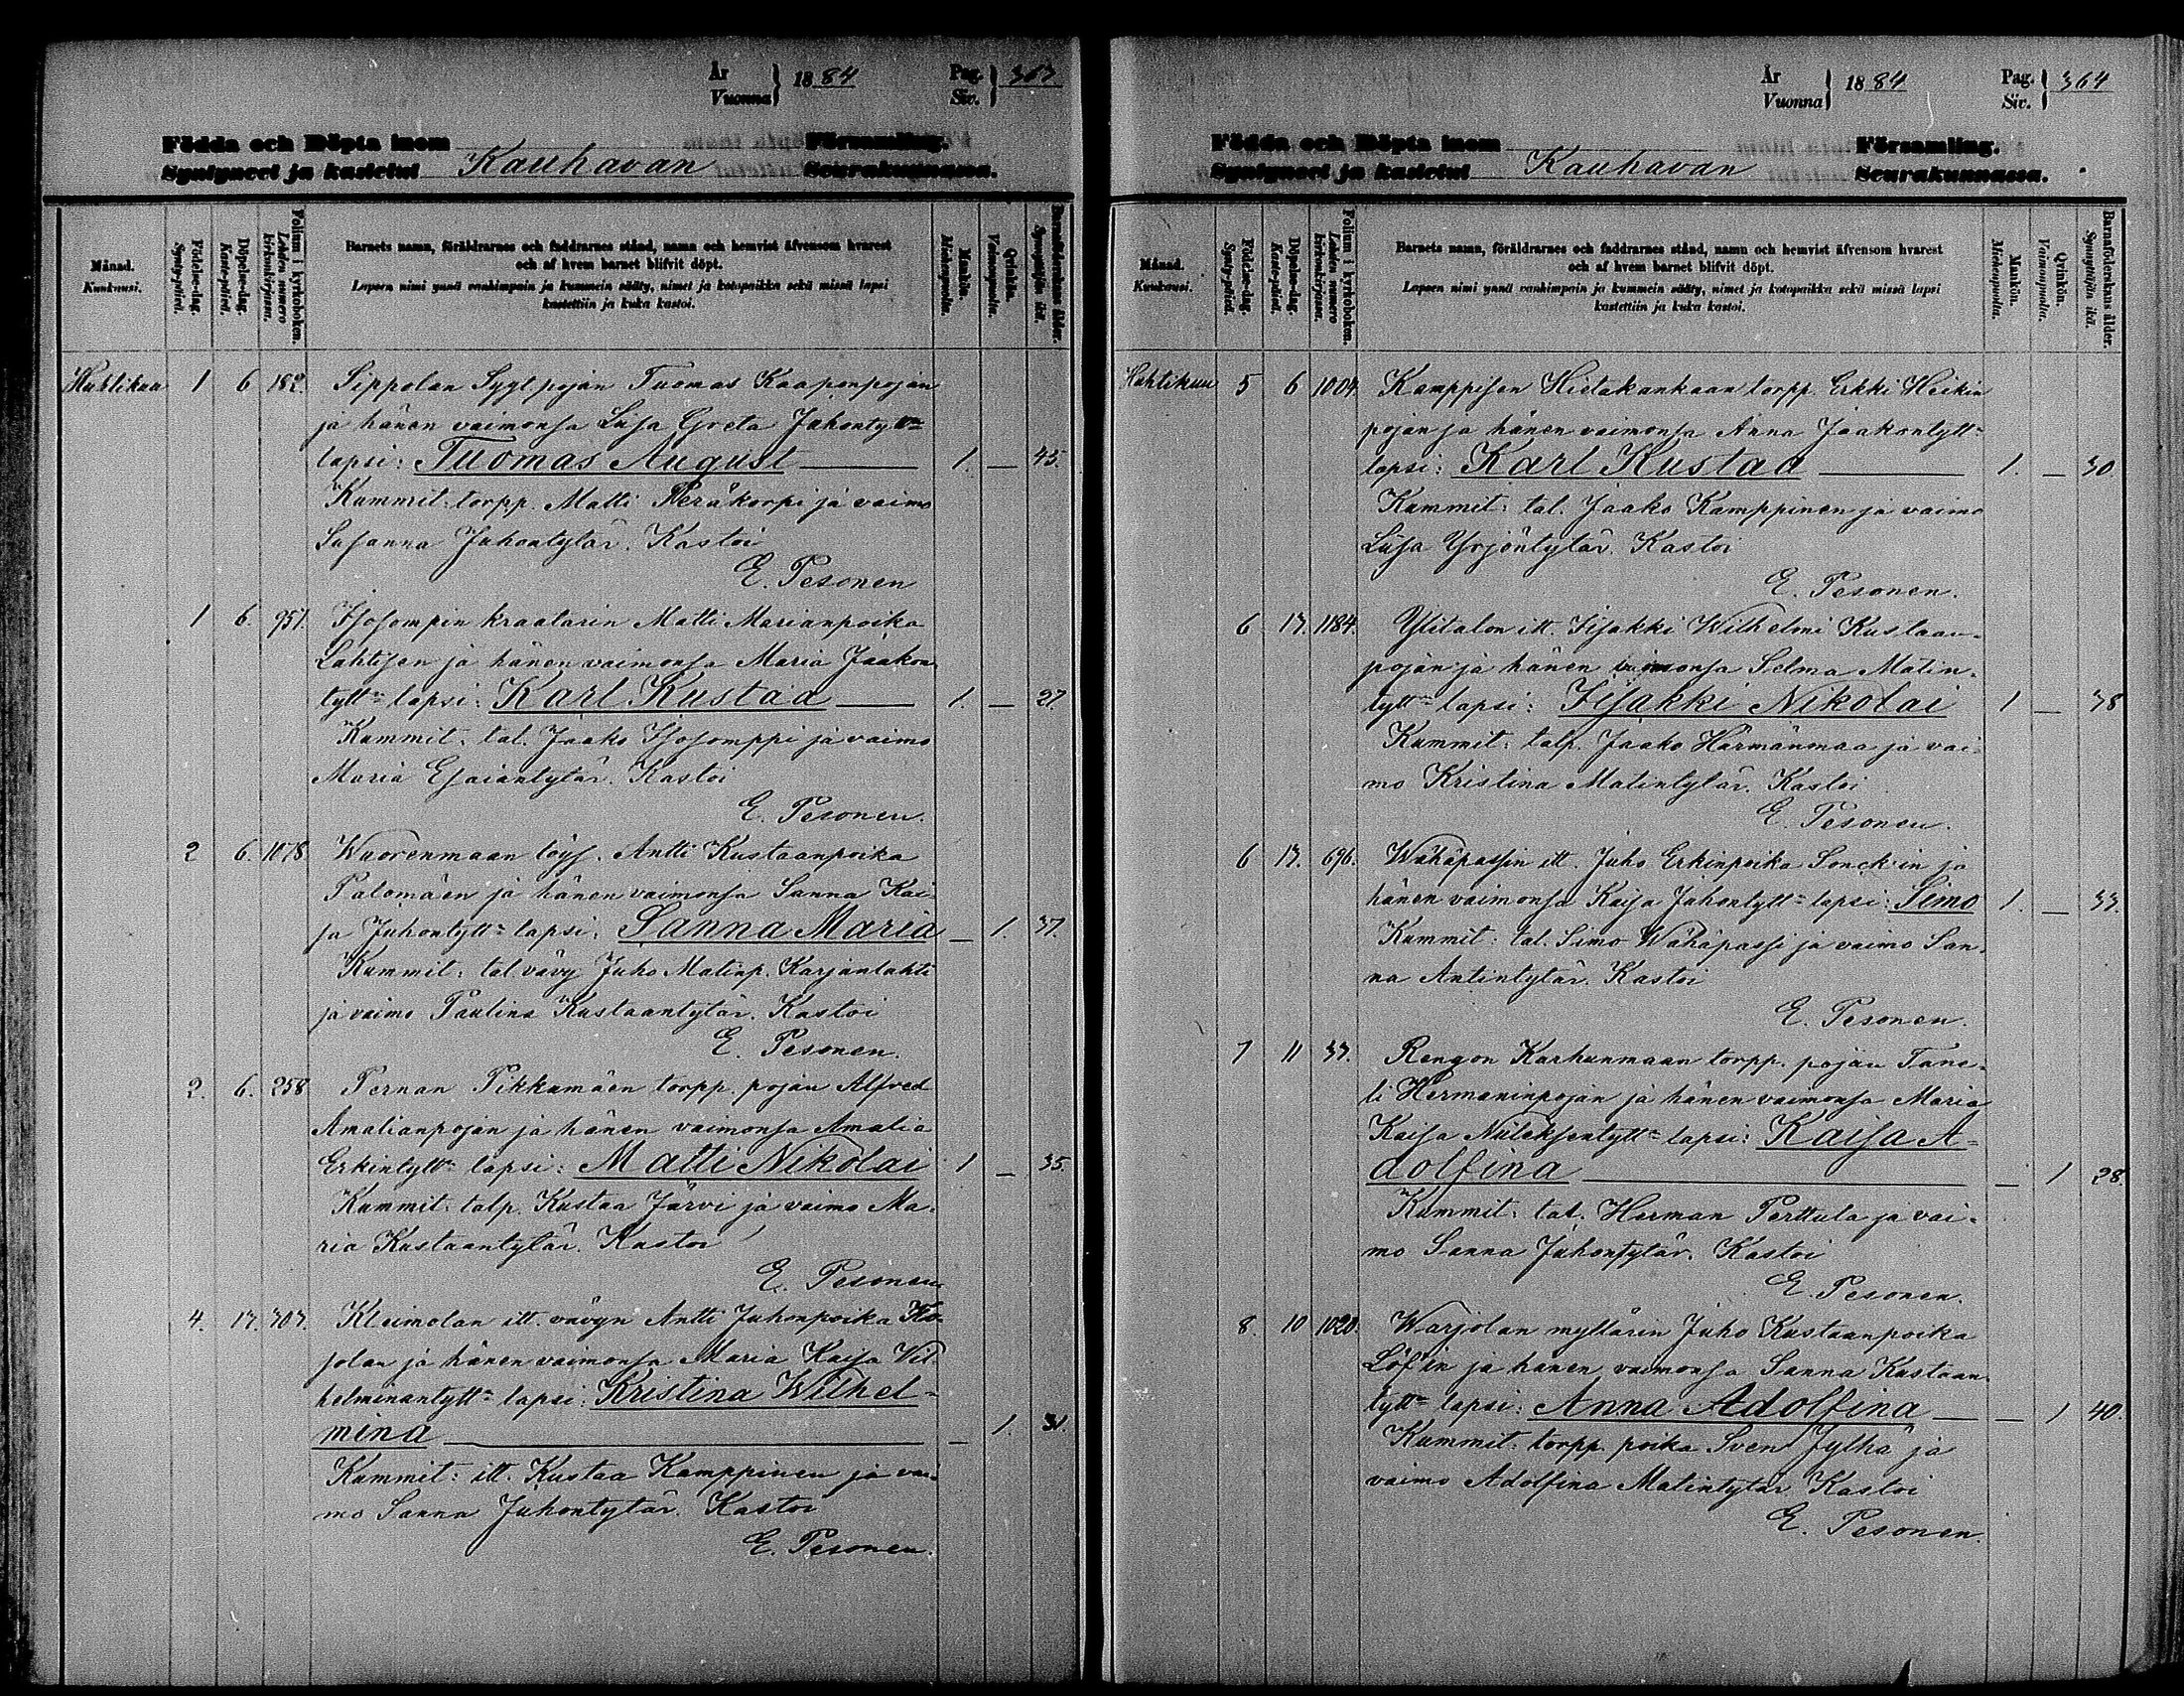 År
Vuonna } 1884 Pag.
Siv. } 363
Födda och Döpta inom Församling.
Syntyneet ja kastetut Kauhavan Seurakunnassa.
Månad.
Kuukausi.
Födelse-dag.
Synty-päivä.
Döpelse-dag.
Kaste-päivä.
Folium i kyrkoboken.
Lehden numero kirkonkirjassa.
Barnets namn, föräldrarnes och faddrarnes stånd, namn och hemvist äfvensom hvarest
och af hvem barnet blifvit döpt.
Lapsen nimi ynnä vanhimpain ja kummein sääty, nimet ja kotopaikka sekä missä lapsi
kastettiin ja kuka kastoi.
Mankön.
Miehenpuolia.
Qvinkön.
Vaimonpuolia.
Barnaföderskans ålder.
Synnyttäjän ikä.
Huhtikuu 1 6 182. Sippolan Sygt. pojan Tuomas Kaaponpojan
ja hänen vaimonsa Liisa Greta Juhontytt=
lapsi: Tuomas August 1. — 45.
Kummit: torpp. Matti Peräkorpi ja vaimo
Susanna Juhontytär. Kastoi
E. Pesonen
1 6. 951. Isosompin kraatarin Matti Marianpoika
Lahtisen ja hänen vaimonsa Maria Jaakon
tytt= lapsi: Karl Kustaa 1. — 27.
Kummit: tal. Jaako Isosomppi ja vaimo
Maria Esaiantytär. Kastoi
E. Pesonen.
2 6. 1078. Wuorenmaan löys. Antti Kustaanpoika
Palomäen ja hänen vaimonsa Sanna Kai-
sa Juhontytt= lapsi: Sanna Maria — 1. 37.
Kummit: tal vävy Juho Matinp. Karjanlahti
ja vaimo Paulina Kustaantytär. Kastoi
E. Pesonen.
2. 6. 258 Pernan Pikkumäen torpp. pojan Alfred
Amalianpojan ja hänen vaimonsa Amalia
Erkintytt= lapsi: Matti Nikolai 1 — 35.
Kummit: talp. Kustaa Järvi ja vaimo Ma-
ria Kustaantytär. Kastoi
E. Pesonen.
4. 13. 303. Kleimolan itt. vävyn Antti Juhonpoika
ja hänen vaimonsa Maria Kaisa Vil
helminantytt= lapsi: Kristina Wilhel-
mina — 1. 31.
Kummit: itt. Kustaa Kamppinen ja vai-
mo Sanna Juhontytär. Kastoi
E. Pesonen.
År
Vuonna } 1884 Pag.
Siv. } 364
Födda och Döpta inom Församling.
Syntyneet ja kastetut Kauhavan Seurakunnassa.
Månad.
Kuukausi.
Födelse-dag.
Synty-päivä.
Döpelse-dag.
Kaste-päivä.
Folium i kyrkoboken.
Lehden numero kirkonkirjassa.
Barnets namn, föräldrarnes och faddrarnes stånd, namn och hemvist äfvensom hvarest
och af hvem barnet blifvit döpt.
Lapsen nimi ynnä vanhimpain ja kummein sääty, nimet ja kotopaikka sekä missä lapsi
kastettiin ja kuka kastoi.
Mankön.
Miehenpuolia.
Qvinkön.
Vaimonpuolia.
Barnaföderskans ålder.
Synnyttäjän ikä.
Huhtikuu 5 6 1004. Kamppisen Hietakankaan torpp. Erkki Heikin
pojan ja hänen vaimonsa Anna Jaakontytt=
lapsi: Karl Kustaa 1. — 30.
Kummit: tal. Jaako Kamppinen ja vaimo
Liisa Yrjöntytär. Kastoi
E. Pesonen.
6 13. 1184. Ylitalon itt. Iisakki Wilhelmi Kustaan-
pojan ja hänen vaimonsa Selma Matin-
tytt= lapsi: Iisakki Nikolai 1 — 38
Kummit: talp. Jaako Härmänmaa ja vai-
mo Kristina Matintytär. Kastoi
E. Pesonen.
6 13. 696. Wähäpassin itt. Juho Erkinpoika Sonck'in ja
hänen vaimonsa Kaisa Juhontytt= lapsi: Simo 1. — 33.
Kummit: tal. Simo Wähäpassi ja vaimo San-
na Antintytär. Kastoi
E. Pesonen.
7 11 33. Rengon Karhunmaan torpp. pojan Tane-
li Hermaninpojan ja hänen vaimonsa Maria
Kaisa Niileksentytt= lapsi: Kaisa A-
dolfina — 1 28.
Kummit: tal. Herman Perttula ja vai-
mo Sanna Juhontytär. Kastoi
E. Pesonen.
8. 10 1020. Warjolan myllärin Juho Kustaanpoika
Löf'in ja hänen vaimonsa Sanna Kustaan
tytt= lapsi: Anna Adolfina — 1 40.
Kummit: torpp. poika Sven Jylhä ja
vaimo Adolfina Matintytär Kastoi
E. Pesonen.